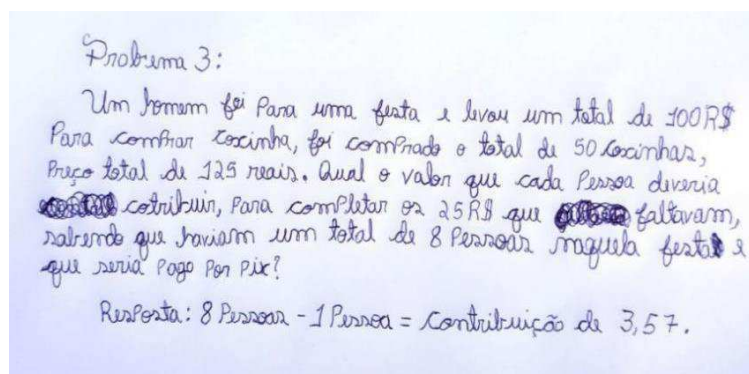 Probrema 3:
Um homem foi Para uma festa e levou um total de 100R$
Para comprar coxinha, foi comPrado o total de 50 coxinhas,
Preço total de 125 reais. Qual o valor que cada Pessoa deveria
cotribuir, Para comPletar os 25R$ que faltavam,
sabendo que haviam um total de 8 Pessoas naquela festa e
que seria Pago Por Pix?
ResPosta: 8 Pessoas - 1 Pessoa = Contribuição de 3,57.